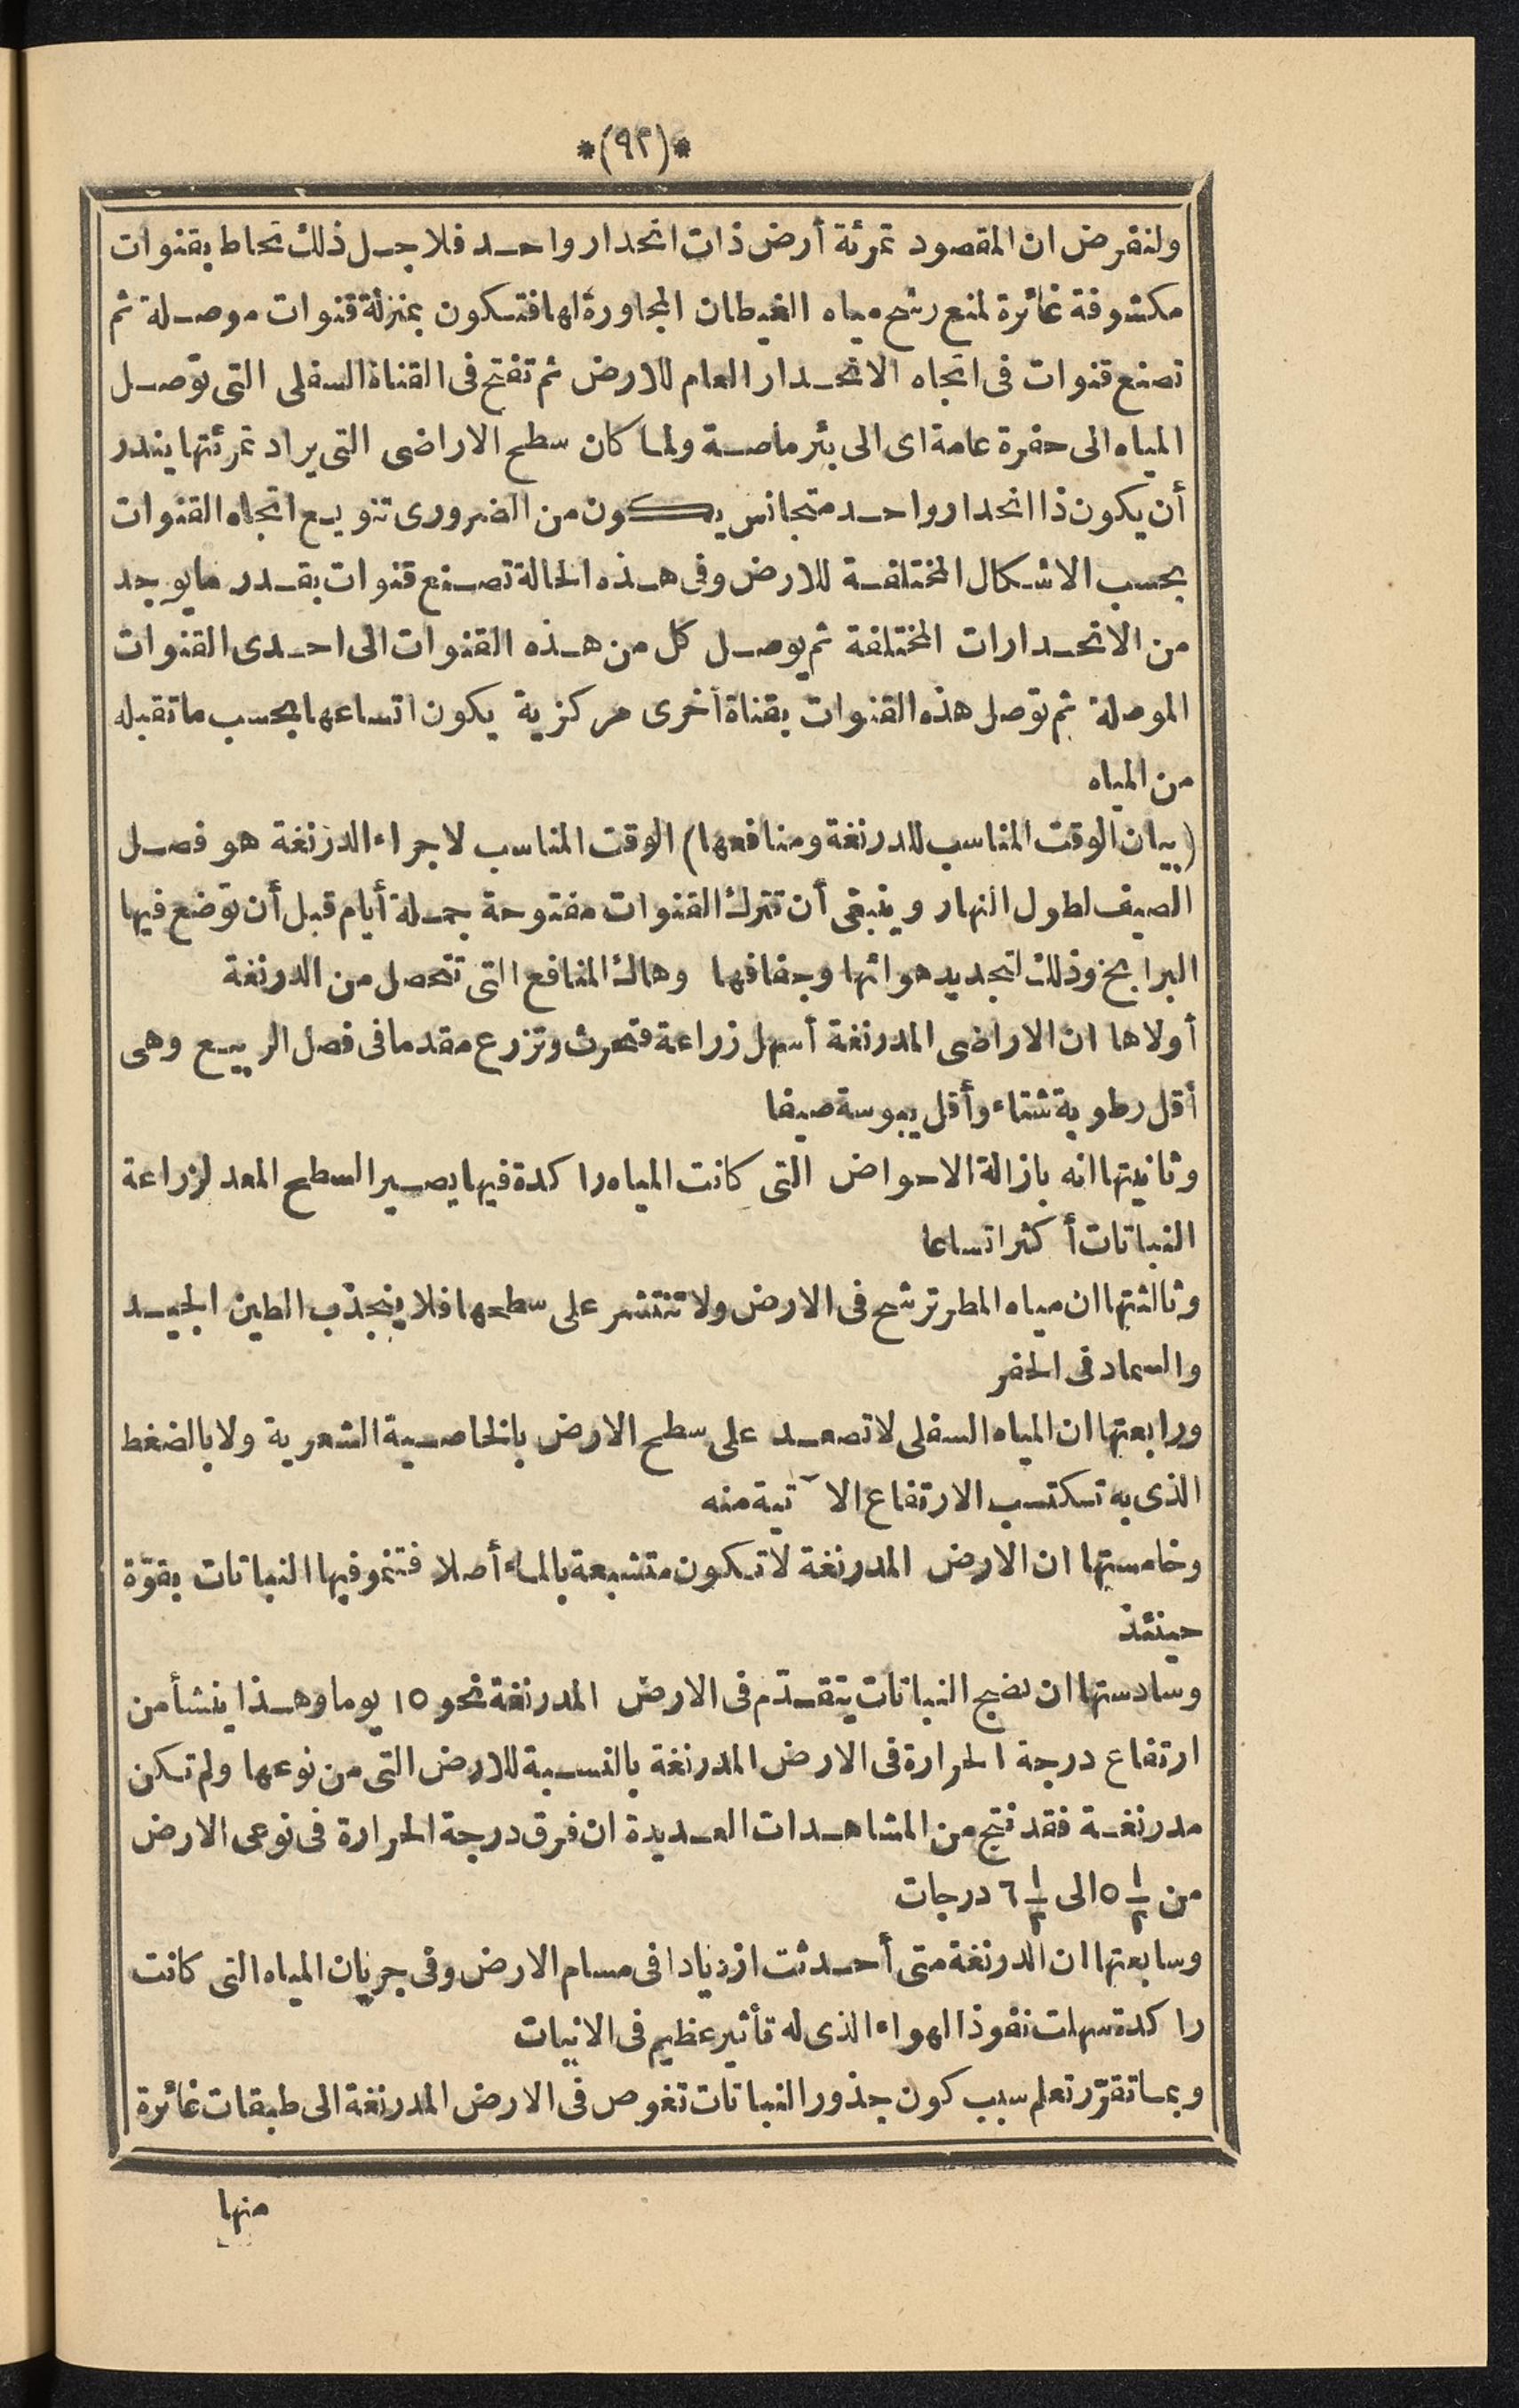 *(٩٢)*
ولنفرض ان المقصود تمرئة أرض ذات انحدار واحد فلاجل ذلك تحاط بقنوات
مكشوفة غائرة لمنع رشح مياه الغيطان المجاورة لها فتكون بمنزلة قنوات موصلة ثم
تصنع قنوات فى اتجاه الانحدار العام للارض ثم تفتح فى القناة السفلى التى توصل
المياه الى حفرة عامة اى الى بئر ماصة ولما كان سطح الاراضى التى يراد تمرئتها يندر
أن يكون ذا انحدار واحد متجانس يكون من الضرورى تنويع اتجاه القنوات
بحسب الاشكال المختلفة للارض وفى هذه الحالة تصنع قنوات بقدر ما يوجد
من الانحدارات المختلفة ثم يوصل كل من هذه القنوات الى احدى القنوات
الموصلة ثم توصل هذه القنوات بقناة أخرى مركزية يكون اتساعها بحسب ما تقبله
من المياه
(بيان الوقت المناسب للدرنغة ومنافعها) الوقت المناسب لاجراء الدرنغة هو فصل
الصيف لطول النهار وينبغى أن تترك القنوات مفتوحة جملة أيام قبل أن توضع فيها
البرابخ وذلك لتجديد هوائها وجفافها وهاك المنافع التى تتحصل من الدرنغة
أولاها ان الاراضى المدرنغة أسهل زراعة فتحرث وتزرع مقدما فى فصل الربيع وهى
أقل رطوبة شتاء وأقل يبوسة صيفا
وثانيتها انه بازالة الاحواض التى كانت المياه راكدة فيها يصير السطح المعد لزراعة
النباتات أكثر اتساعا
وثالثتها ان مياه المطر ترشح فى الارض ولا تنتشر على سطحها فلا ينجذب الطين الجيد
والسماد فى الحفر
ورابعتها ان المياه السفلى لا تصعد على سطح الارض بالخاصية الشعرية ولا بالضغط
الذى به تكتسب الارتفاع الآتية منه
وخامستها ان الارض المدرنغة لا تكون متشبعة بالماء أصلا فتنمو فيها النباتات بقوّة
حينئذ
وسادستها ان نضج النباتات يتقدّم فى الارض المدرنغة نحو ١٥ يوما وهذا ينشأ من
ارتفاع درجة الحرارة فى الارض المدرنغة بالنسبة للارض التى من نوعها ولم تكن
مدرنغة فقد نتج من المشاهدات العديدة ان فرق درجة الحرارة فى نوعى الارض
من ½ ٥ الى ½ ٦ درجات
وسابعتها ان الدرنغة متى أحدثت ازديادا فى مسام الارض وفى جريان المياه التى كانت
راكدة سهلت نفوذ الهواء الذى له تأثير عظيم فى الانبات
وبما تقرّر تعلم سبب كون جذور النباتات تغوص فى الارض المدرنغة الى طبقات غائرة
منها